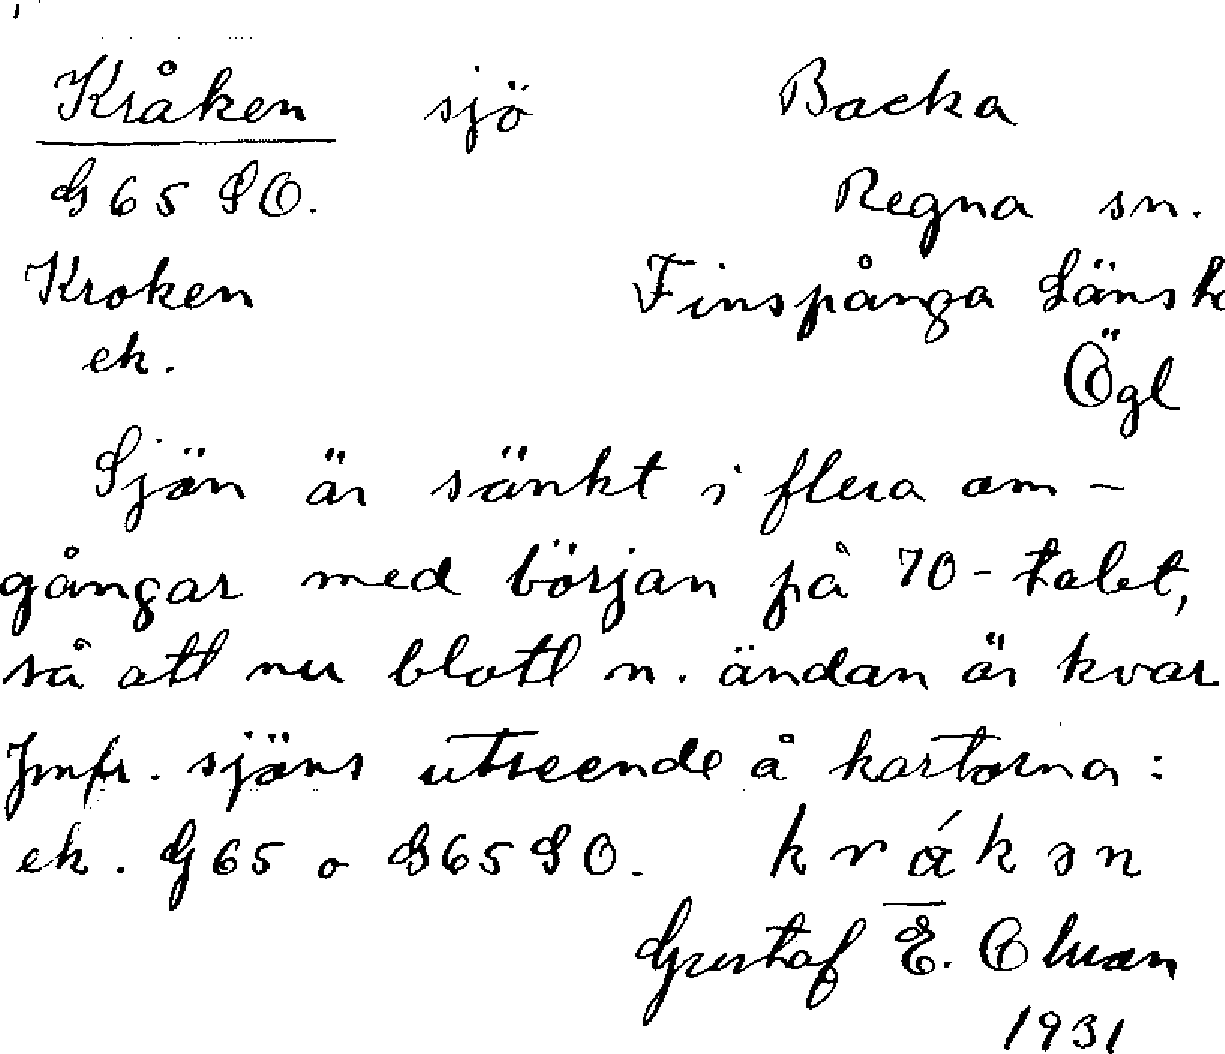 Kråken sjö Backa
G65 SO. Regna sn.
Kroken Finspånga Länsh
ek. Ögl
Sjön är sänkt i flera om-
gångar med början på 70-talet,
så att nu blott n. ändan är kvar
Jmfr. sjöns utseende å kartorna:
ek. G65 o G65 SO. krákən
Gustaf E. Olsson
1931